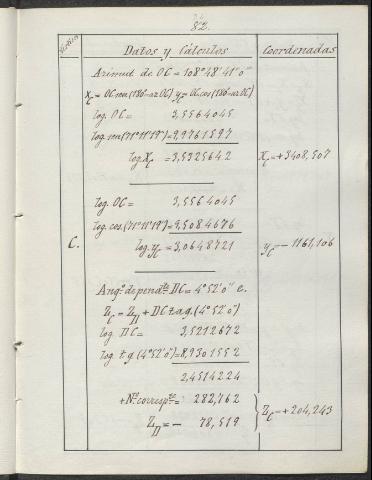 82.
Datos y Cálculos Coordenadas
Azimut de OC = 108°48'41"0
log. OC = 3,5564045
log. sen (71°11'19") = 9,9761597
log. Xc = 3,5325642 Xc = +3408,507
log. OC = 3,5564045
log. cos. (71°11'19") = 9,5084676
C. log. yc = 3,0648721 yc = - 1161,106
Ang.º de pend.te DC = 4°52'0" e.
Zc = ZD + DC tag. (4°52'0")
log. DC = 3,5212672
log tg (4°52'0") = 8,9301552
2,4514224
+ N.º corresp.te = 282,762
Zc = + 204,243
ZD = - 78,519